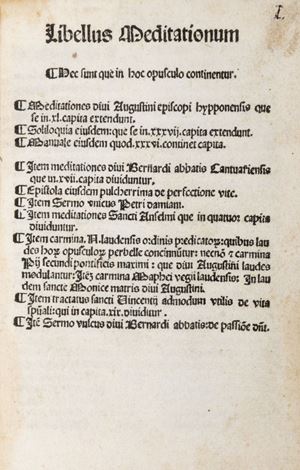 I.
Libellus Meditationum
¶ Hec sunt que in hoc opusculo continentur.
¶ Meditationes diui Augustini episcopi hypponensis que
se in .xl. capita extendunt.
¶ Soliloquia eiusdem: que se in .xxxvij. capita extendunt.
¶ Manuale eiusdem quod .xxxvi. continet capita.
¶ Item meditationes diui Bernardi abbatis Cantuariensis
que in .xvii. capita diuiduntur.
¶ Epistola eiusdem pulcherrima de perfectione vite.
¶ Item Sermo vnicus Petri damiani.
¶ Item meditationes Sancti Anselmi que in quatuor capita
diuiduntur.
¶ Item carmina .N. laudensis ordinis predicatoꝝ: quibus lau
des hoꝝ opusculoꝝ perbelle concinnũtur: necnõ ⁊ carmina
Pij secundi pontificis maximi: que diui Augustini laudes
modulantur: Itẽ carmina Maphei vegii laudensis: In lau
dem sancte Monice matris diui Augustini.
¶ Item tractatus sancti Uincentij admodum vtilis de vita
spũali: qui in capita .xix. diuiditur.
¶ Itẽ Sermo vnicus diui Bernardi abbatis: de passiõe dñi.